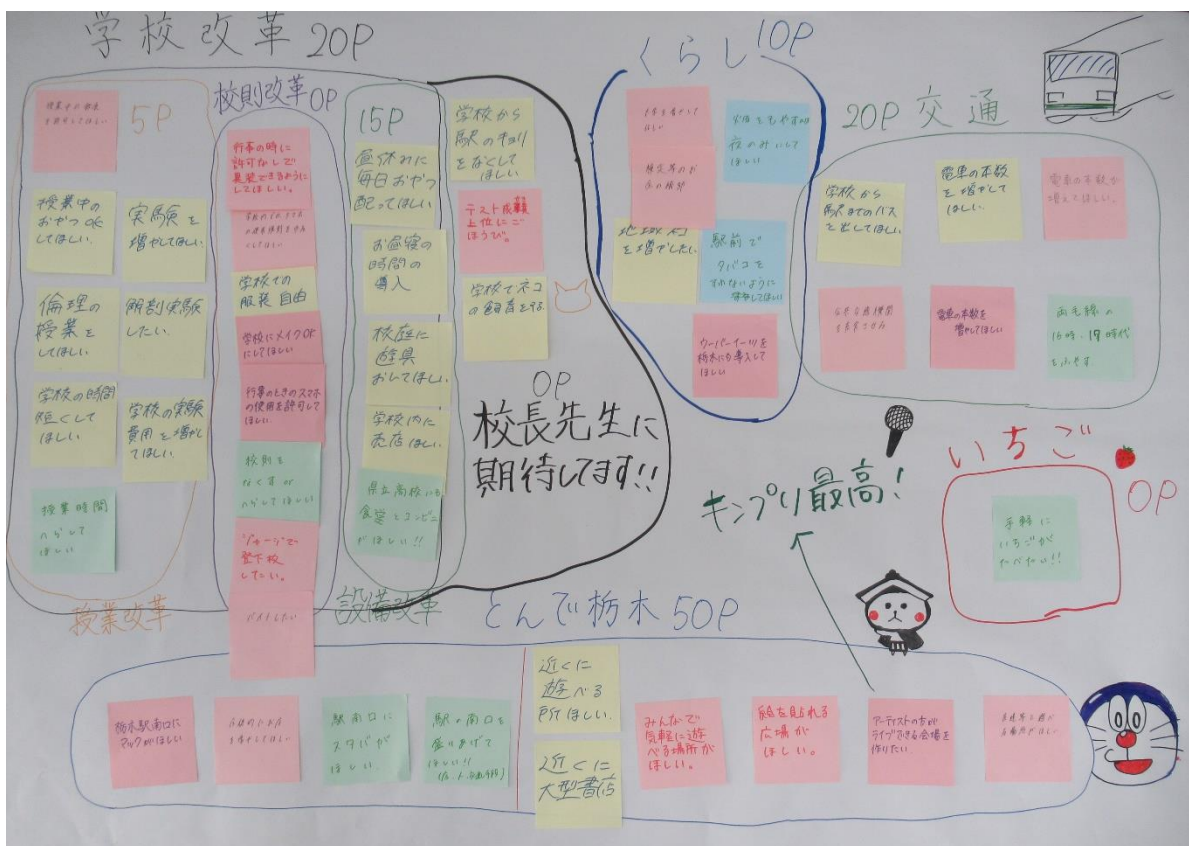 学校改革 20P
5P
授業中の
おやつOK
してほしい
実験を
増やしてほしい
倫理の
授業を
してほしい
解剖実験
したい.
学校の時間
短くして
ほしい
学校の実験
費用を増やし
てほしい.
授業時間
へらして
ほしい
授業改革
校則改革 0P
行事の時に
許可なしで
異装できるように
してほしい。
学校での
服装自由
学校にメイクOK
にしてほしい
行事のときのスマホ
の使用を許可して
ほしい.
校則を
なくす or
へらしてほしい
ジャージで
登下校
したい。
バイトしたい
15P
昼休みに
毎日おやつ
配ってほしい
お昼寝の
時間の
導入
校庭に
遊具
おいてほしい
学校内に
売店ほしい.
県立高校にも
食堂とコンビニ
がほしい!!
設備改革
学校から
駅のキョリ
をなくして
ほしい
テスト
上位にご
ほうび。
学校でネコ
の飼育をする
0P
校長先生に
期待してます!!
くらし 10P
夜のみにして
ほしい
を増やしたい
駅前で
タバコを
すわないように
してほしい
ウーバーイーツを
栃木にも導入して
ほしい
20P 交通
学校から
駅までのバス
を出してほしい
電車の本数
を増やして
ほしい.
電車の本数が
増えてほしい.
電車の本数を
増やしてほしい
両毛線の
16時、17時代
をふやす
キンプリ最高!
いちご
0P
手軽に
いちごが
たべたい!!
とんで栃木 50P
栃木駅南口に
マックがほしい
駅南口に
スタバが
ほしい.
駅の南口を
盛りあげて
ほしい!!
近くに
遊べる
所ほしい.
近くに
大型書店
みんなで
気軽に遊
べる場所が
ほしい。
絵を見られる
広場が
ほしい。
アーティストの方が
ライブできる会場を
作りたい.